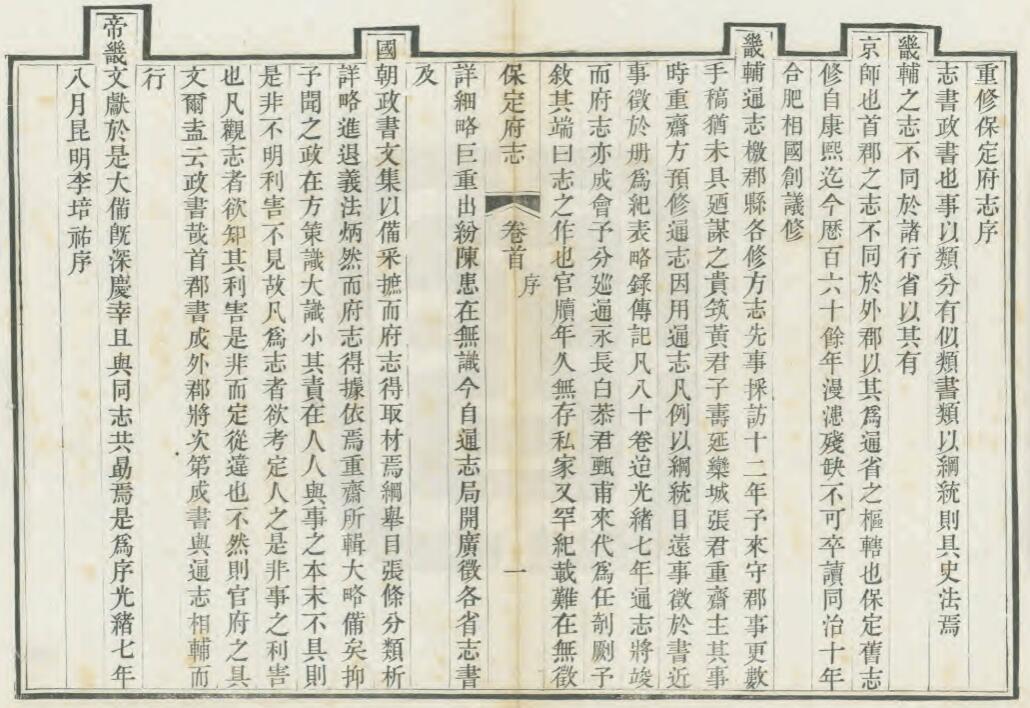 重修保定府志序
志書政書也事以類分有似類書類以綱統則具史法焉
畿輔之志不同於諸行省以其有
京師也首郡之志不同於外郡以其為通省之樞轄也保定舊志
修自康熙迄今歷百六十餘年漫漶殘缺不可卒讀同治十年
合肥相國創議修
畿輔通志檄郡縣各修方志先事採訪十二年予來守郡事更數
手稿猶未具廼謀之貴筑黃君子壽延欒城張君重齋主其事
時重齋方預修通志因用通志凡例以綱統目遠事徵於書近
事徵於册為紀表略錄傳記凡八十卷迨光緒七年通志將竣
而府志亦成會予分巡通永長白恭君甄甫來代為任剞劂予
敘其端曰志之作也官牘年久無存私家又罕紀載難在無徵
保定府志 卷首 序 一
詳細略巨重出紛陳患在無識今自通志局開廣徵各省志書
及
國朝政書文集以備采摭而府志得取材焉綱舉目張條分類析
詳略進退義法炳然而府志得據依焉重齋所輯大略備矣抑
予聞之政在方策識大識小其責在人人與事之本末不具則
是非不明利害不見故凡為志者欲考定人之是非事之利害
也凡觀志者欲知其利害是非而定從違也不然則官府之具
文爾盍云政書哉首郡書成外郡將次第成書與通志相輔而
行
帝畿文獻於是大備旣深慶幸且與同志共勗焉是為序光緒七年
八月昆明李培祜序